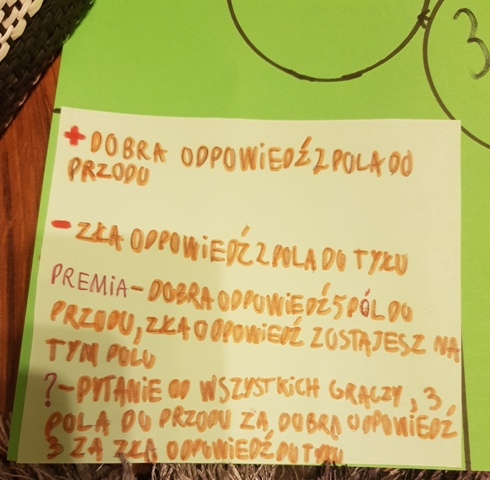 3
+ DOBRA ODPOWiEDŹ 2 POLA DO
PRZODU
- ZŁA ODPOWiEDŹ 2 POLA DO TYŁU
PREMiA - DOBRA ODPOWiEDŹ 5 PÓL DO
PRZODU, ZŁA ODPOWiEDŹ ZOSTAJESZ NA
TYM POLU
? - PYTANiE OD WSZYSTKiCH GRACZY, 3
POLA DO PRZODU ZA DOBRĄ ODPOWiEDŹ
3 ZA ZŁĄ ODPOWiEDŹ DO TYŁU